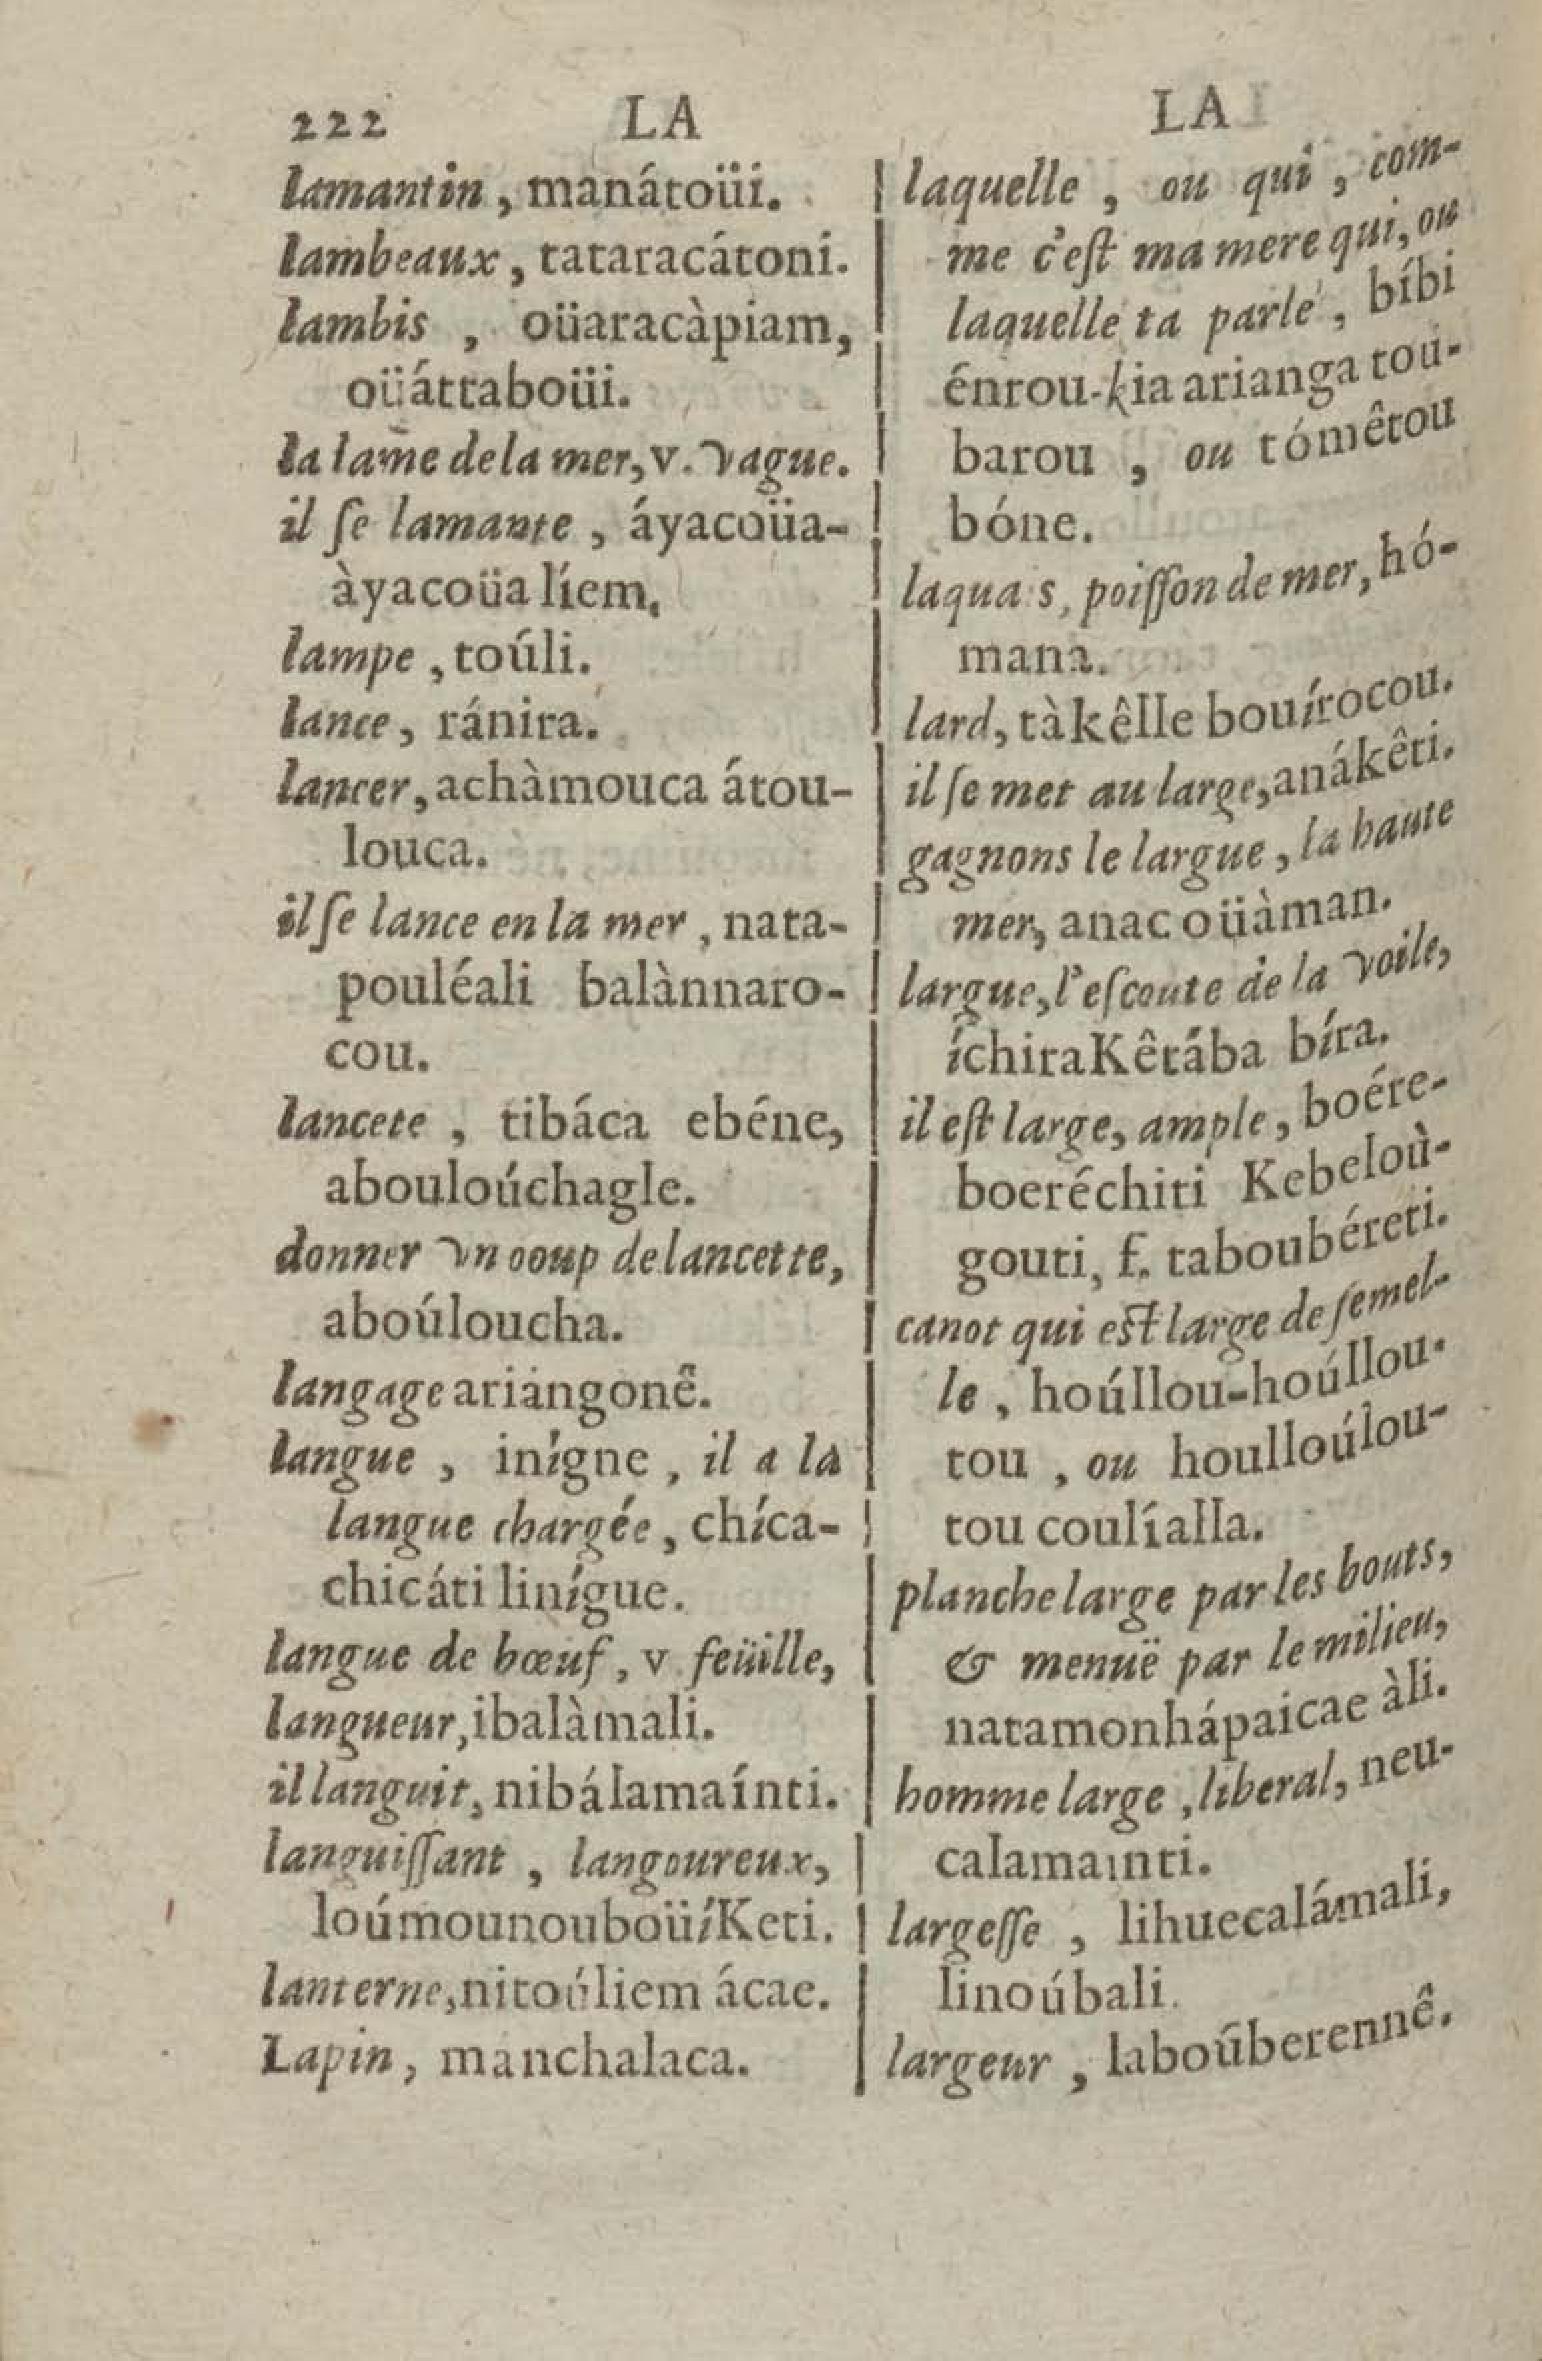 222 LA
lamantin, manátoüi.
lambeaux, tataracátoni.
lambis , oüaracàpiam,
oüáttaboüi.
la lame de la mer, v. vague.
il ſe lamante, áyacoüa-
àyacoüa líem.
lampe, toúli.
lance, ránira.
lancer, achàmouca átou-
louca.
il ſe lance en la mer, nata-
pouléali balànnaro-
cou.
lancete , tibáca ebéne,
abouloúchagle.
donner vn ooup de lancette,
aboúloucha.
langage ariangonê.
langue , inígne, il a la
langue chargée, chíca-
chicáti linígue.
langue de bœuf, v feüille,
langueur, ibalàmali.
il languit, nibálamaínti.
languiſſant , langoureux,
loúmounouboüíKeti.
lanterne, nitoúliem ácae.
Lapin, manchalaca.
LA
laquelle , ou qui, com-
me c'eſt ma mere qui, ou
laquelle ta parlé, bíbi
énrou-kia arianga tou-
barou , ou tómêtou
bóne.
laqua s, poiſſon de mer, hó-
mana.
lard, tàkêlle bouírocou.
il ſe met au large, anákêti.
gagnons le largue, la haute
mer, anacoüàman.
largue, l'eſcoute de la voile,
íchiraKêtába bíra.
il eſt large, ample, boére-
boeréchiti Kebeloù-
gouti, f. taboubéreti.
canot qui eſt large de ſemel-
le , hoúllou-hoúllou-
tou , ou houlloúlou-
tou coulíalla.
planche large par les bouts,
& menuë par le milieu,
natamonhápaicae àli.
homme large, liberal, neu-
calamainti.
largeſſe , lihuecalámali,
linoúbali.
largeur , laboúberennê.